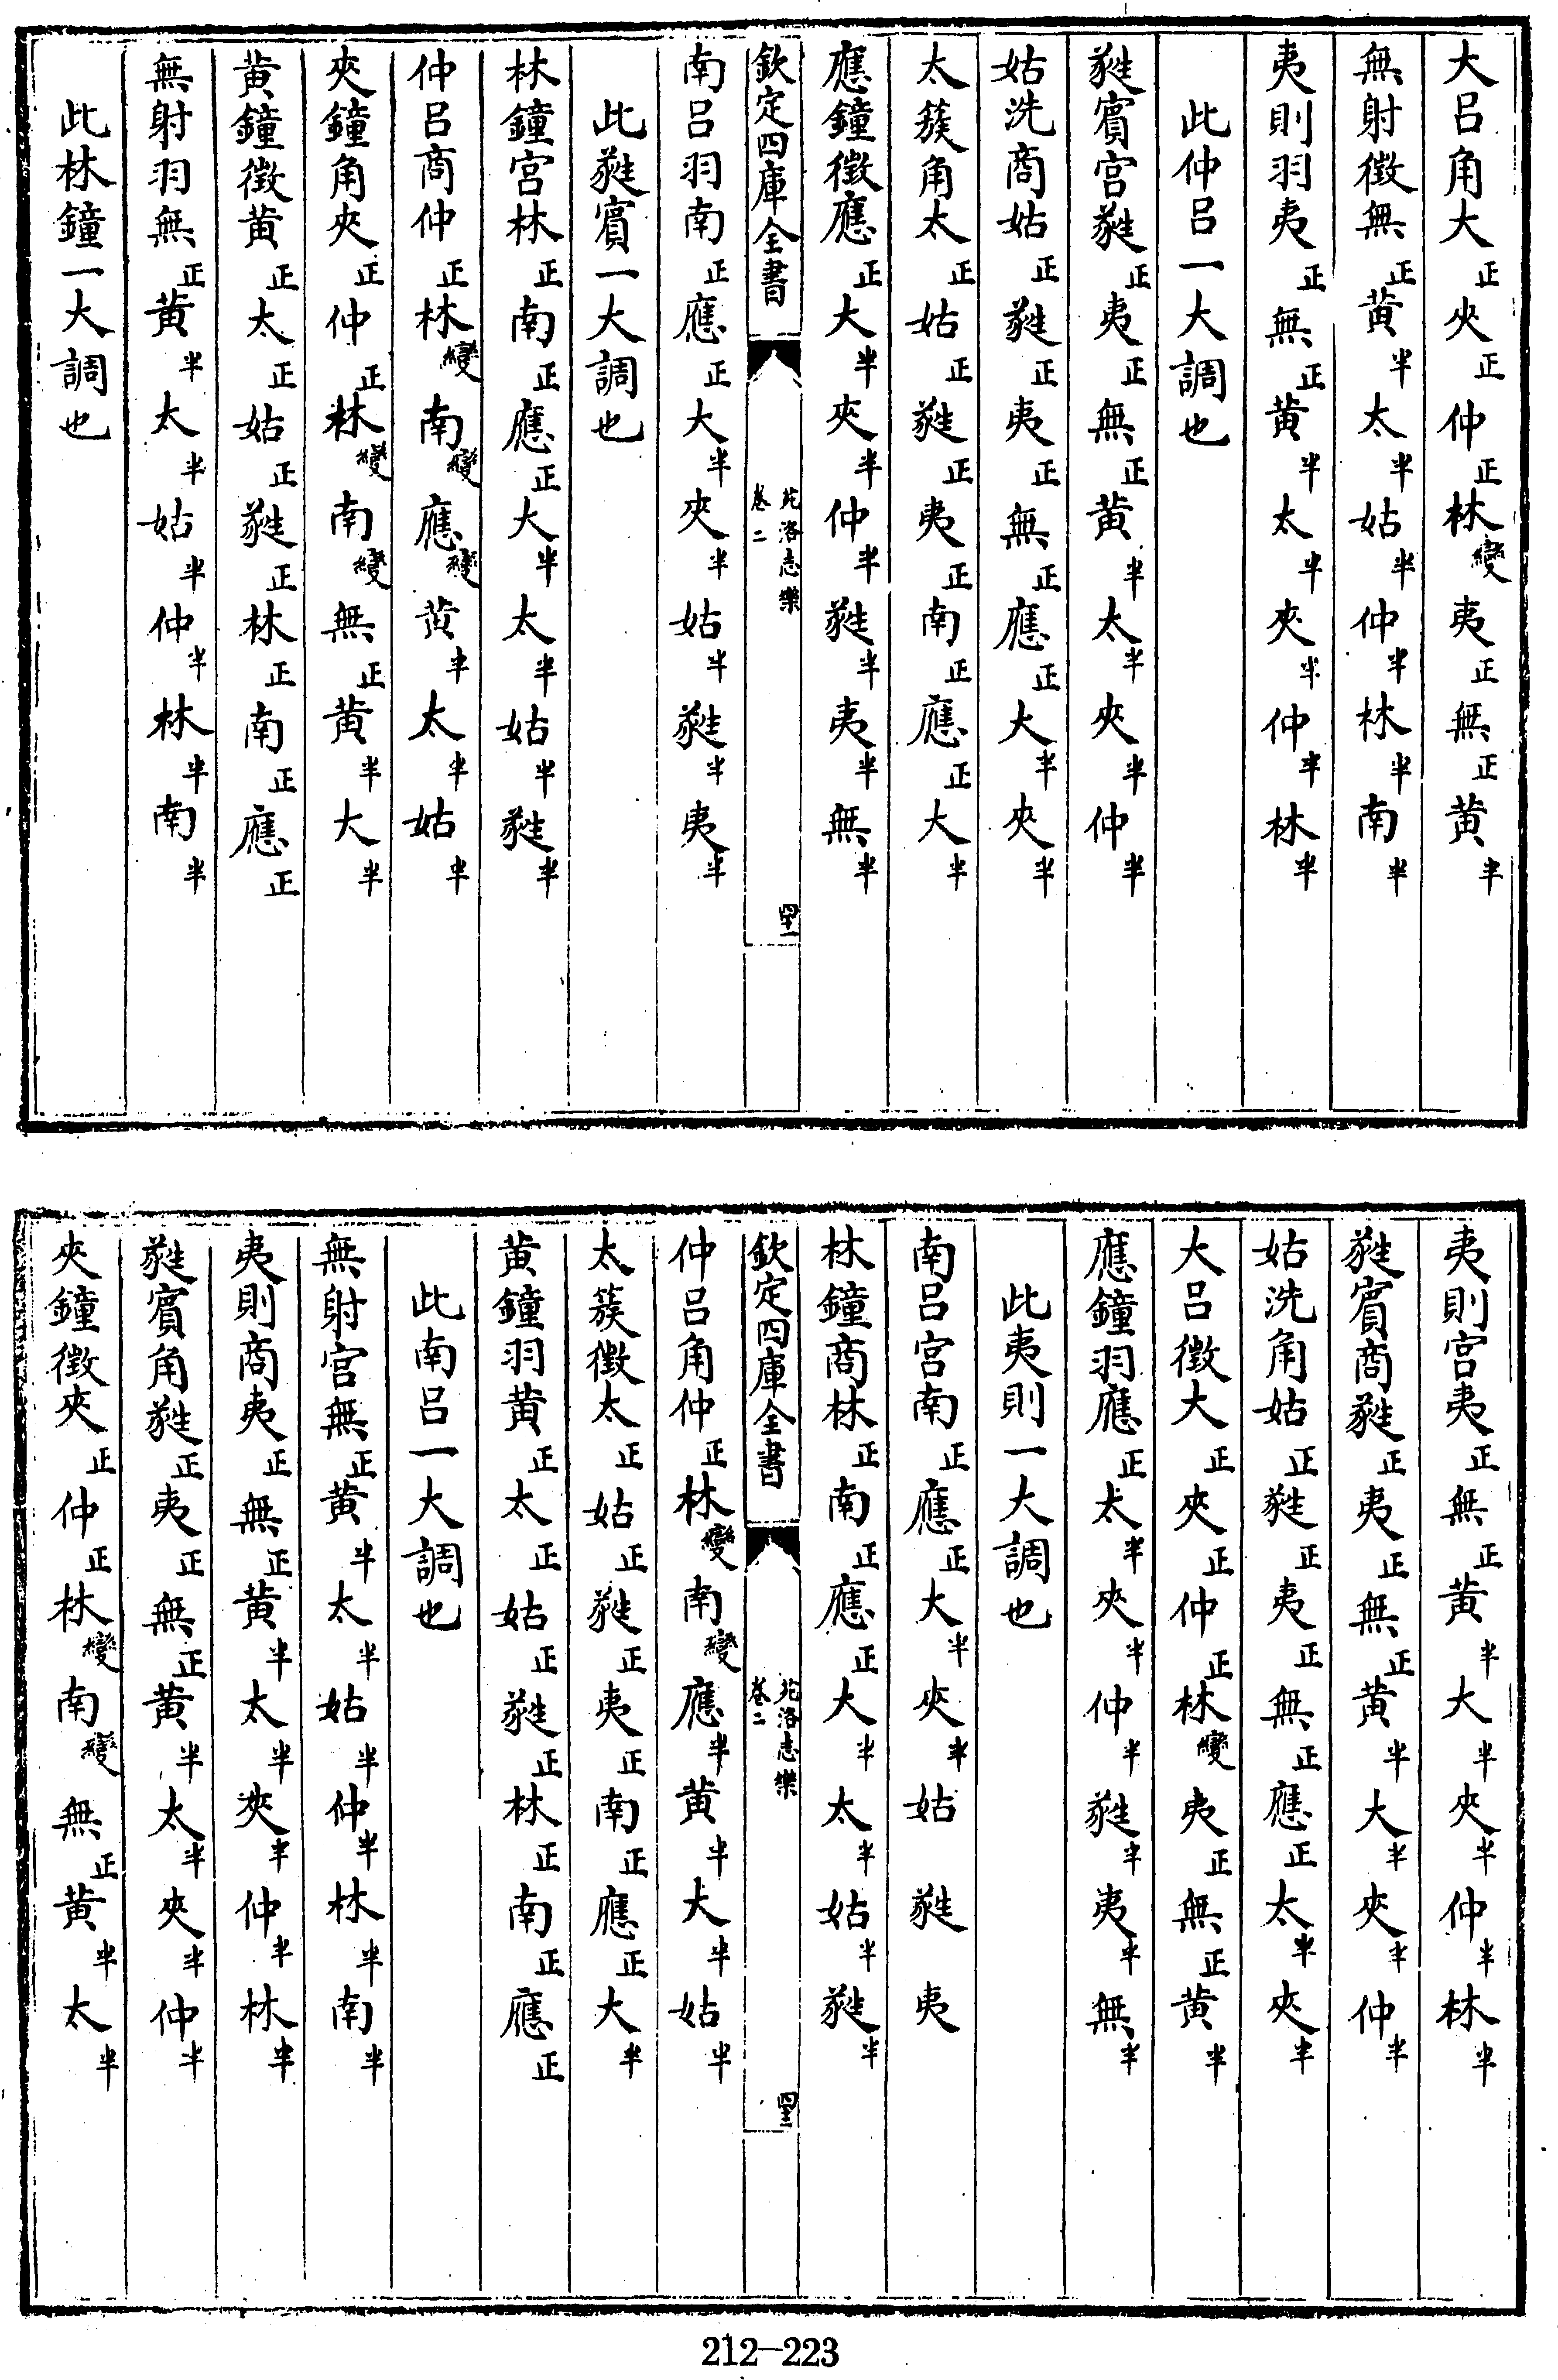 大呂角大正夾正仲正林變夷正無正黄半
無射徵無正黄半太半姑半仲半林半南半
夷則羽夷正無正黄半太半夾半仲半林半
此仲呂一大調也
蕤賓宫蕤正夷正無正黄半太半夾半仲半
姑洗商姑正蕤正夷正無正應正大半夾半
太簇角太正姑正蕤正夷正南正應正大半
應鐘徵應正大半夾半仲半蕤半夷半無半
欽定四庫全書
苑洛志樂
卷二
四十一
南呂羽南正應正大半夾半姑半蕤半夷半
此蕤賓一大調也
林鐘宫林正南正應正大半太半姑半蕤半
仲呂商仲正林變南變應變黄半太半姑半
夾鐘角夾正仲正林變南變無正黄半大半
黄鐘徵黄正太正姑正蕤正林正南正應正
無射羽無正黄半太半姑半仲半林半南半
此林鐘一大調也
夷則宫夷正無正黄半大半夾半仲半林半
蕤賓商蕤正夷正無正黄半大半夾半仲半
姑洗角姑正蕤正夷正無正應正太半夾半
大呂徵大正夾正仲正林變夷正無正黄半
應鐘羽應正太半夾半仲半蕤半夷半無半
此夷則一大調也
南呂宫南正應正大半夾半姑蕤夷
林鐘商林正南正應正大半太半姑半蕤半
欽定四庫全書
苑洛志樂
卷二
四十二
仲呂角仲正林變南變應半黄半大半姑半
太簇徵太正姑正蕤正夷正南正應正大半
黄鐘羽黄正太正姑正蕤正林正南正應正
此南呂一大調也
無射宫無正黄半太半姑半仲半林半南半
夷則商夷正無正黄半太半夾半仲半林半
蕤賓角蕤正夷正無正黄半太半夾半仲半
夾鐘徵夾正仲正林變南變無正黄半太半
212-223